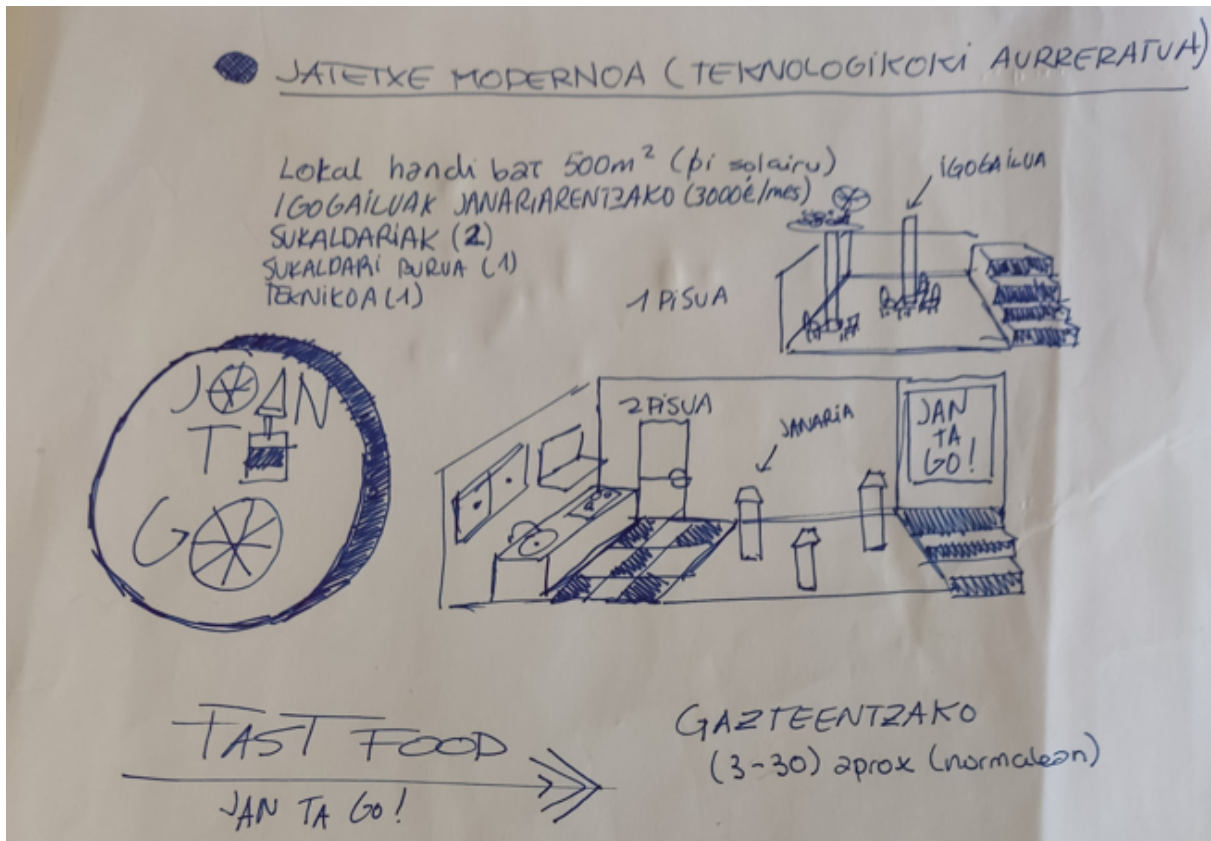 JATETXE MODERNOA (TEKNOLOGIKOKI AURRERATUA)
Lokal handi bat 500m² (bi solairu)
IGOGAILUAK JANARIARENTZAKO (3000€/mes)
SUKALDARIAK (2)
SUKALDARI BURUA (1)
TEKNIKOA (1)
IGOGAILUA
1 PISUA
JOAN
T
GO
2 PISUA
JANARIA
JAN
TA
GO!
FAST FOOD
JAN TA GO!
GAZTEENTZAKO
(3-30) aprox (normalean)